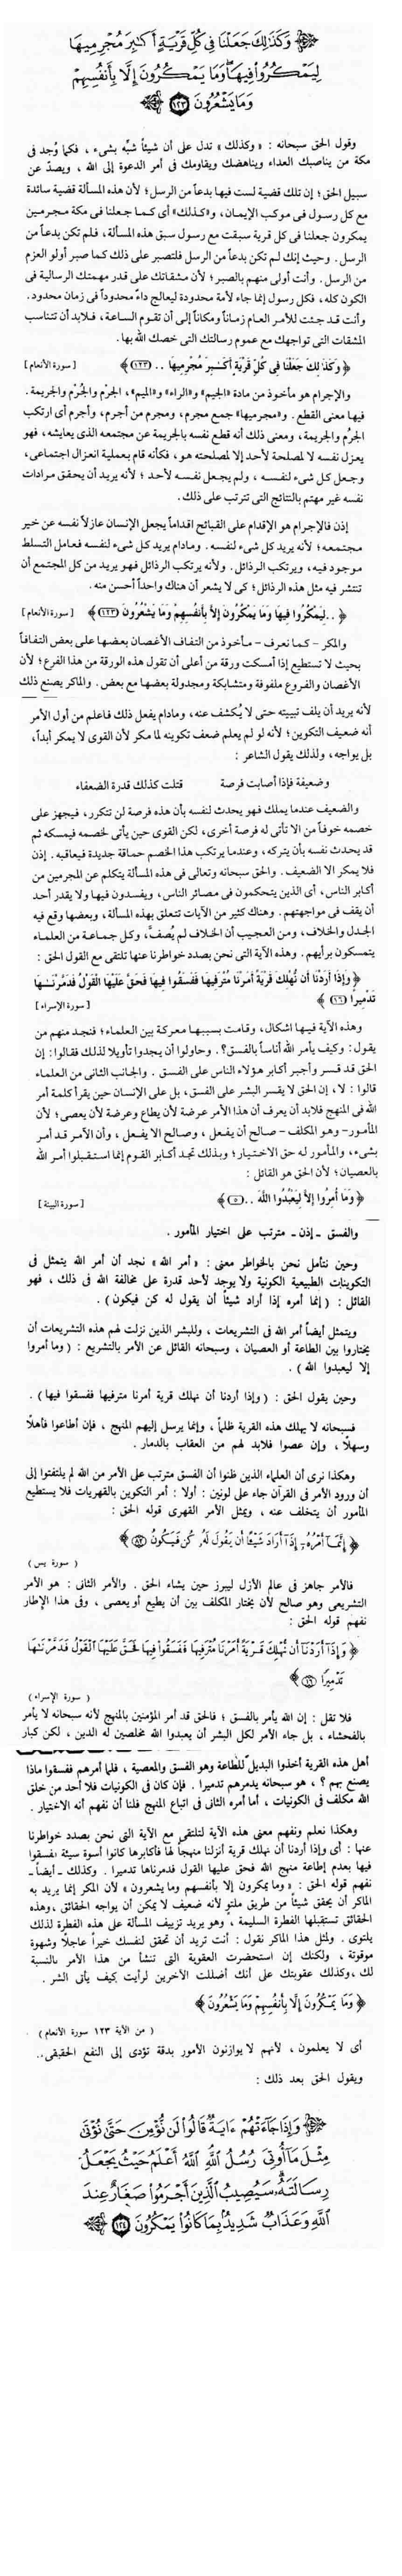 وَكَذَٰلِكَ جَعَلْنَا فِي كُلِّ قَرْيَةٍ أَكَابِرَ مُجْرِمِيهَا
لِيَمْكُرُوا فِيهَا وَمَا يَمْكُرُونَ إِلَّا بِأَنفُسِهِمْ
وَمَا يَشْعُرُونَ ١٢٣
وقول الحق سبحانه : « وكذلك » تدل على أن شيئاً شبِّه بشىء ، فكما وُجد فى
مكة من يناصبك العداء ويناهضك ويقاومك فى أمر الدعوة إلى الله ، ويصدّ عن
سبيل الحق؛ إن تلك قضية لست فيها بدعاً من الرسل؛ لأن هذه المسألة قضية سائدة
مع كل رسول فى موكب الإيمان، و«كذلك» أى كما جعلنا فى مكة مجرمين
يمكرون جعلنا فى كل قرية سبقت مع رسول سبق هذه المسألة، فلم تكن بدعاً من
الرسل . وحيث إنك لم تكن بدعاً من الرسل فلتصبر على ذلك كما صبر أولو العزم
من الرسل . وأنت أولى منهم بالصبر؛ لأن مشقاتك على قدر مهمتك الرسالية فى
الكون كله، فكل رسول إنما جاء لأمة محدودة ليعالج داءً محدوداً فى زمان محدود.
وأنت قد جئت للأمر العام زماناً ومكاناً إلى أن تقوم الساعة، فلابد أن تتناسب
المشقات التى تواجهك مع عموم رسالتك التى خصك الله بها.
﴿ وَكَذَٰلِكَ جَعَلْنَا فِي كُلِّ قَرْيَةٍ أَكَابِرَ مُجْرِمِيهَا .. (١٢٣) ﴾ [ سورة الأنعام ]
والإجرام هو مأخوذ من مادة «الجيم» و«الراء» و«الميم»، الجرْم والجُرْم والجريمة.
فيها معنى القطع . و«مجرميها» جمع مجرم، ومجرم من أجرم، وأجرم أى ارتكب
الجرُم والجريمة، ومعنى ذلك أنه قطع نفسه بالجريمة عن مجتمعه الذى يعايشه، فهو
يعزل نفسه لا لمصلحة لأحد إلا لمصلحته هو، فكأنه قام بعملية انعزال اجتماعى،
وجعل كل شىء لنفسه ، ولم يجعل نفسه لأحد ؛ لأنه يريد أن يحقق مرادات
نفسه غير مهتم بالنتائج التى تترتب على ذلك .
إذن فالإجرام هو الإقدام على القبائح اقداماً يجعل الإنسان عازلاً نفسه عن خير
مجتمعه؛ لأنه يريد كل شىء لنفسه . ومادام يريد كل شىء لنفسه فعامل التسلط
موجود فيه، ويرتكب الرذائل . ولأنه يرتكب الرذائل فهو يريد من كل المجتمع أن
تنتشر فيه مثل هذه الرذائل؛ كى لا يشعر أن هناك واحداً أحسن منه.
﴿ .. لِيَمْكُرُوا فِيهَا وَمَا يَمْكُرُونَ إِلاَّ بِأَنفُسِهِمْ وَمَا يَشْعُرُونَ (١٢٣) ﴾ [ سورة الأنعام ]
والمكر – كما نعرف – مأخوذ من التفاف الأغصان بعضها على بعض التفافاً
بحيث لا تستطيع إذا أمسكت ورقة من أعلى أن تقول هذه الورقة من هذا الفرع؛ لأن
الأغصان والفروع ملفوفة ومتشابكة ومجدولة بعضها مع بعض . والماكر يصنع ذلك
لأنه يريد أن يلف تبييته حتى لا يُكشف عنه، ومادام يفعل ذلك فاعلم من أول الأمر
أنه ضعيف التكوين؛ لأنه لو لم يعلم ضعف تكوينه لما مكر لأن القوى لا يمكر أبداً،
بل يواجه، ولذلك يقول الشاعر :
وضعيفة فإذا أصابت فرصة قتلت كذلك قدرة الضعفاء
والضعيف عندما يملك فهو يحدث لنفسه بأن هذه فرصة لن تتكرر، فيجهز على
خصمه خوفاً من الا تأتى له فرصة أخرى، لكن القوى حين يأتى لخصمه فيمسكه ثم
قد يحدث نفسه بأن يتركه، وعندما يرتكب هذا الخصم حماقة جديدة فيعاقبه. إذن
فلا يمكر الا الضعيف . والحق سبحانه وتعالى فى هذه المسألة يتكلم عن المجرمين من
أكابر الناس، أى الذين يتحكمون فى مصائر الناس، ويفسدون فيها ولا يقدر أحد
أن يقف فى مواجهتهم. وهناك كثير من الآيات تتعلق بهذه المسألة، وبعضها وقع فيه
الجدل والخلاف، ومن العجيب أن الخلاف لم يُصفَّ، وكل جماعة من العلماء
يتمسكون برأيهم. وهذه الآية التى نحن بصدد خواطرنا عنها تلتقى مع القول الحق :
﴿ وَإِذَا أَرَدْنَا أَن نُّهْلِكَ قَرْيَةً أَمَرْنَا مُتْرَفِيهَا فَفَسَقُوا فِيهَا فَحَقَّ عَلَيْهَا الْقَوْلُ فَدَمَّرْنَاهَا
تَدْمِيرًا (١٦) ﴾ [ سورة الإسراء ]
وهذه الآية فيها اشكال، وقامت بسببها معركة بين العلماء؛ فنجد منهم من
يقول: وكيف يأمر الله أناساً بالفسق؟. وحاولوا أن يجدوا تأويلا لذلك فقالوا: إن
الحق قد قسر وأجبر أكابر هؤلاء الناس على الفسق . والجانب الثانى من العلماء
قالوا : لا، إن الحق لا يقسر البشر على الفسق، بل على الإنسان حين يقرأ كلمة أمر
الله فى المنهج فلابد أن يعرف أن هذا الأمر عرضة لأن يطاع وعرضة لأن يعصى؛ لأن
المأمور- وهو المكلف - صالح أن يفعل ، وصالح ألا يفعل ، وأن الآمر قد أمر
بشىء، والمأمور له حق الاختيار؛ وبذلك تجد أكابر القوم إنما استقبلوا أمر الله
بالعصيان؛ لأن الحق هو القائل :
﴿ وَمَا أُمِرُوا إِلاَّ لِيَعْبُدُوا اللَّهَ .. (٥) ﴾ [ سورة البينة ]
والفسق – إذن – مترتب على اختيار المأمور .
وحين نتأمل نحن بالخواطر معنى : « أمر الله » نجد أن أمر الله يتمثل فى
التكوينات الطبيعية الكونية ولا يوجد لأحد قدرة على مخالفة الله فى ذلك ، فهو
القائل : ( إنما أمره إذا أراد شيئاً أن يقول له كن فيكون ) .
ويتمثل أيضاً أمر الله فى التشريعات ، وللبشر الذين نزلت لهم هذه التشريعات أن
يختاروا بين الطاعة أو العصيان ، وسبحانه القائل عن الأمر بالتشريع : ( وما أمروا
إلا ليعبدوا الله ) .
وحين يقول الحق : ( وإذا أردنا أن نهلك قرية أمرنا مترفيها ففسقوا فيها ) .
فسبحانه لا يهلك هذه القرية ظلماً ، وإنما يرسل إليهم المنهج ، فإن أطاعوا فأهلًا
وسهلًا ، وإن عصوا فلابد لهم من العقاب بالدمار .
وهكذا نرى أن العلماء الذين ظنوا أن الفسق مترتب على الأمر من الله لم يلتفتوا إلى
أن ورود الأمر فى القرآن جاء على لونين : أولا : أمر التكوين بالقهريات فلا يستطيع
المأمور أن يتخلف عنه ، ويمثل الأمر القهرى قوله الحق :
﴿ إِنَّمَا أَمْرُهُ إِذَا أَرَادَ شَيْئًا أَن يَقُولَ لَهُ كُن فَيَكُونُ ٨٢ ﴾
( سورة يس )
فالأمر جاهز فى عالم الأزل ليبرز حين يشاء الحق . والأمر الثانى : هو الأمر
التشريعى وهو صالح لأن يختار المكلف بين أن يطيع أو يعصى ، وفى هذا الإطار
نفهم قوله الحق :
﴿ وَإِذَا أَرَدْنَا أَن نُّهْلِكَ قَرْيَةً أَمَرْنَا مُتْرَفِيهَا فَفَسَقُوا فِيهَا فَحَقَّ عَلَيْهَا الْقَوْلُ فَدَمَّرْنَاهَا
تَدْمِيرًا ١٦ ﴾
( سورة الإسراء )
فلا تقل : إن الله يأمر بالفسق ؛ فالحق قد أمر المؤمنين بالمنهج لأنه سبحانه لا يأمر
بالفحشاء ، بل جاء الأمر لكل البشر أن يعبدوا الله مخلصين له الدين ، لكن كبار
أهل هذه القرية أخذوا البديل للطاعة وهو الفسق والمعصية ، فلما أمرهم ففسقوا ماذا
يصنع بهم ؟ ، هو سبحانه يدمرهم تدميرا . فإن كان فى الكونيات فلا أحد من خلق
الله مكلف فى الكونيات ، أما أمره الثانى فى اتباع المنهج فلنا أن نفهم أنه الاختيار .
وهكذا نعلم ونفهم معنى هذه الآية لتلتقى مع الآية التى نحن بصدد خواطرنا
عنها : أى وإذا أردنا أن نهلك قرية أنزلنا منهجاً لها فأكابرها كانوا أسوة سيئة ففسقوا
فيها بعدم إطاعة منهج الله فحق عليها القول فدمرناها تدميرا . وكذلك – أيضاً –
نفهم قوله الحق : « وما يمكرون إلا بأنفسهم وما يشعرون » لأن المكر إنما يريد به
الماكر أن يحقق شيئاً من طريق ملتو لأنه ضعيف لا يمكن أن يواجه الحقائق ، وهذه
الحقائق تستقبلها الفطرة السليمة ، وهو يريد تزييف المسألة على هذه الفطرة لذلك
يلتوى . ولمثل هذا الماكر نقول : أنت تريد أن تحقق لنفسك خيراً عاجلًا وشهوة
موقوتة ، ولكنك إن استحضرت العقوبة التى تنشأ من هذا الأمر بالنسبة
لك ، وكذلك عقوبتك على أنك أضللت الآخرين لرأيت كيف يأتى الشر .
﴿ وَمَا يَمْكُرُونَ إِلَّا بِأَنفُسِهِمْ وَمَا يَشْعُرُونَ ﴾
( من الآية ١٢٣ سورة الأنعام )
أى لا يعلمون ، لأنهم لا يوازنون الأمور بدقة تؤدى إلى النفع الحقيقى .
ويقول الحق بعد ذلك :
وَإِذَا جَاءَتْهُمْ ءَايَةٌ قَالُوا لَن نُّؤْمِنَ حَتَّىٰ نُؤْتَىٰ
مِثْلَ مَا أُوتِيَ رُسُلُ اللَّهِ اللَّهُ أَعْلَمُ حَيْثُ يَجْعَلُ
رِسَالَتَهُ سَيُصِيبُ الَّذِينَ أَجْرَمُوا صَغَارٌ عِندَ
اللَّهِ وَعَذَابٌ شَدِيدٌ بِمَا كَانُوا يَمْكُرُونَ ١٢٤